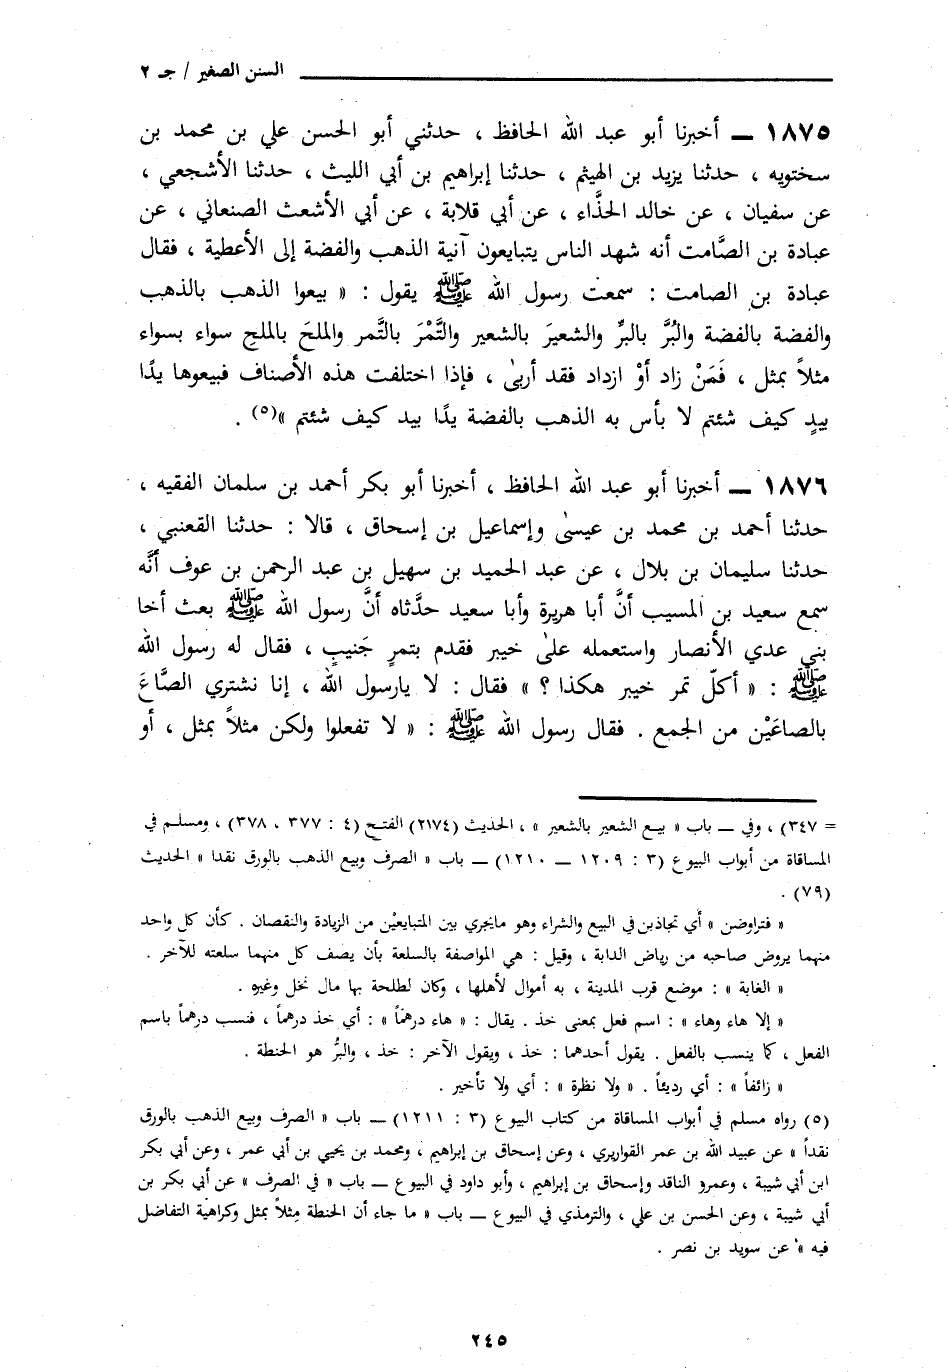 السنن الصغير / جـ ٢
١٨٧٥ ـ أخبرنا أبو عبد الله الحافظ ، حدثني أبو الحسن علي بن محمد بن
سختويه ، حدثنا يزيد بن الهيثم ، حدثنا إبراهيم بن أبي الليث ، حدثنا الأشجعي ،
عن سفيان ، عن خالد الحذَّاء ، عن أبي قلابة ، عن أبي الأشعث الصنعاني ، عن
عبادة بن الصَّامت أنه شهد الناس يتبايعون آنية الذهب والفضة إلى الأعطية ، فقال
عبادة بن الصامت : سمعت رسول الله ﷺ يقول : « بيعوا الذهب بالذهب
والفضة بالفضة والبُرَّ بالبرِّ والشعيرَ بالشعير والتَّمْرَ بالتَّمر والملحَ بالملحِ سواء بسواء
مثلاً بمثل ، فَمَنْ زاد أوْ ازداد فقد أربىٰ ، فإذا اختلفت هذه الأصناف فبيعوها يدًا
بيدٍ كيف شئتم لا بأس به الذهب بالفضة يدًا بيد كيف شئتم »(٥) .
١٨٧٦ ـ أخبرنا أبو عبد الله الحافظ ، أخبرنا أبو بكر أحمد بن سلمان الفقيه ،
حدثنا أحمد بن محمد بن عيسىٰ وإسماعيل بن إسحاق ، قالا : حدثنا القعنبي ،
حدثنا سليمان بن بلال ، عن عبد الحميد بن سهيل بن عبد الرحمن بن عوف أنَّه
سمع سعيد بن المسيب أنَّ أبا هريرة وأبا سعيد حدَّثاه أنَّ رسول الله ﷺ بعث أخا
بني عدي الأنصار واستعمله علىٰ خيبر فقدم بتمرٍ جَنيبٍ ، فقال له رسول الله
ﷺ : « أكلّ تمر خيبر هكذا ؟ » فقال : لا يارسول الله ، إنا نشتري الصَّاعَ
بالصاعَيْن من الجمع . فقال رسول الله ﷺ : « لا تفعلوا ولكن مثلاً بمثل ، أو
= ٣٤٧) ، وفي ـ باب « بيع الشعير بالشعير » ، الحديث (٢١٧٤) الفتح (٤ : ٣٧٧ ، ٣٧٨) ، ومسلم في
المساقاة من أبواب البيوع (٣ : ١٢٠٩ ـ ١٢١٠) ـ باب « الصرف وبيع الذهب بالورق نقدا » الحديث
(٧٩) .
« فتراوضن » أي تجاذبن في البيع والشراء وهو مايجري بين المتبايعيْن من الزيادة والنقصان . كأن كل واحد
منهما يروض صاحبه من رياض الدابة ، وقيل : هي المواصفة بالسلعة بأن يصف كل منهما سلعته للآخر .
« الغابة » : موضع قرب المدينة ، به أموال لأهلها ، وكان لطلحة بها مال نخل وغيره .
« إلا هاء وهاء » : اسم فعل بمعنى خذ . يقال : « هاء درهماً » : أي خذ درهماً ، فنسب درهماً باسم
الفعل ، كما ينسب بالفعل . يقول أحدهما : خذ ، ويقول الآخر : خذ ، والبرُّ هو الحنطة .
« زائفاً » : أي رديئاً . « ولا نظرة » : أي ولا تأخير .
(٥) رواه مسلم في أبواب المساقاة من كتاب البيوع (٣ : ١٢١١) ـ باب « الصرف وبيع الذهب بالورق
نقداً » عن عبيد الله بن عمر القواريري ، وعن إسحاق بن إبراهيم ، ومحمد بن يحيي بن أبي عمر ، وعن أبي بكر
ابن أبي شيبة ، وعمرو الناقد وإسحاق بن إبراهيم ، وأبو داود في البيوع ـ باب « في الصرف » عن أبي بكر بن
أبي شيبة ، وعن الحسن بن علي ، والترمذي في البيوع ـ باب « ما جاء أن الحنطة مِثلاً بمثل وكراهية التفاضل
فيه » عن سويد بن نصر .
٢٤٥